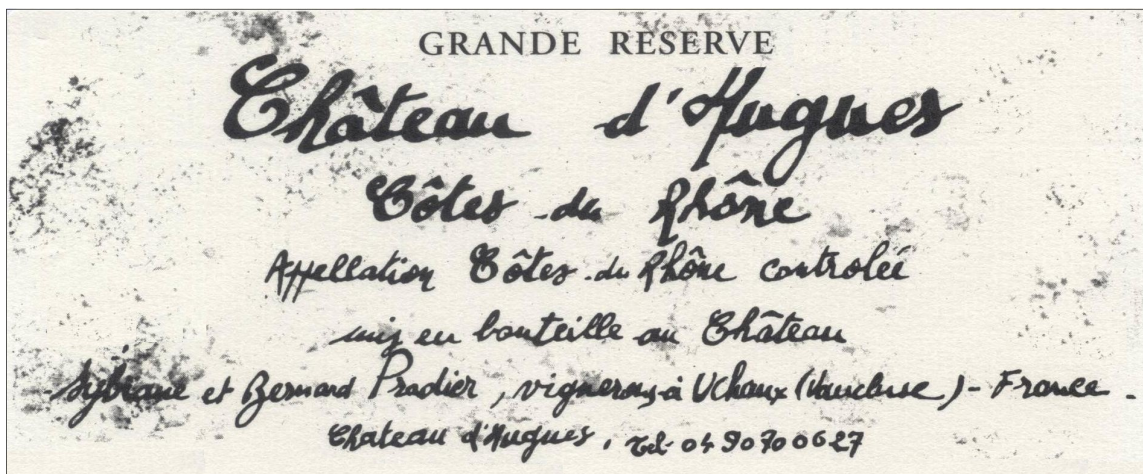 GRANDE RESERVE
Château d'Hugues
Côtes du Rhône
Appellation Côtes du Rhône controlée
mis en bouteille au Château
Sylviane et Bernard Pradier, vignerons à Uchaux (Vaucluse) - France.
Chateau d'Hugues, Tel. 04 90 70 06 27